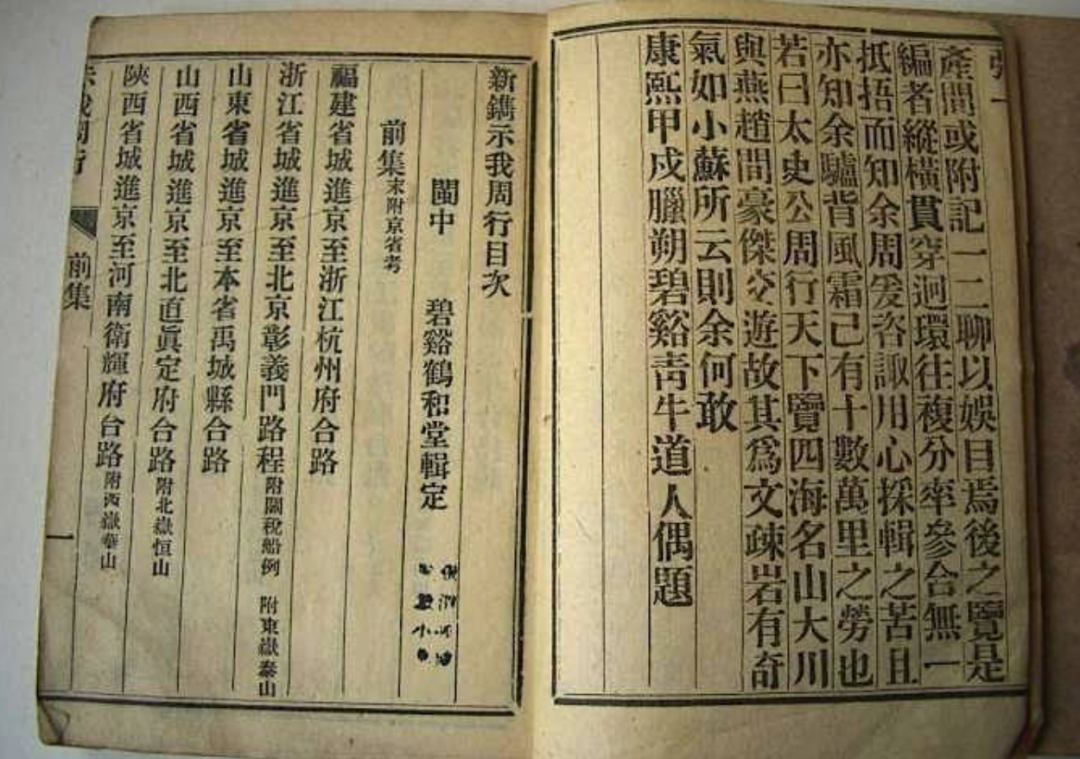 產間或附記一二聊以娛目焉後之覽是
編者縱橫貫穿迴環往複分率參合無一
抵捂而知余周爰咨諏用心採輯之苦且
亦知余驢背風霜已有十數萬里之勞也
若曰太史公周行天下覽四海名山大川
與燕趙間豪傑交遊故其為文疎宕有奇
氣如小蘇所云則余何敢
康熙甲戌臘朔碧谿靑牛道人偶題
新鐫示我周行目次
閩中 碧谿鶴和堂輯定
前集 末附京省考
福建省城進京至浙江杭州府合路
浙江省城進京至北京彰義門路程 附關稅船例 附東嶽泰山
山東省城進京至本省禹城縣合路
山西省城進京至北直眞定府合路 附北嶽恒山
陝西省城進京至河南衛輝府合路 附西嶽華山
示我周行 前集 一